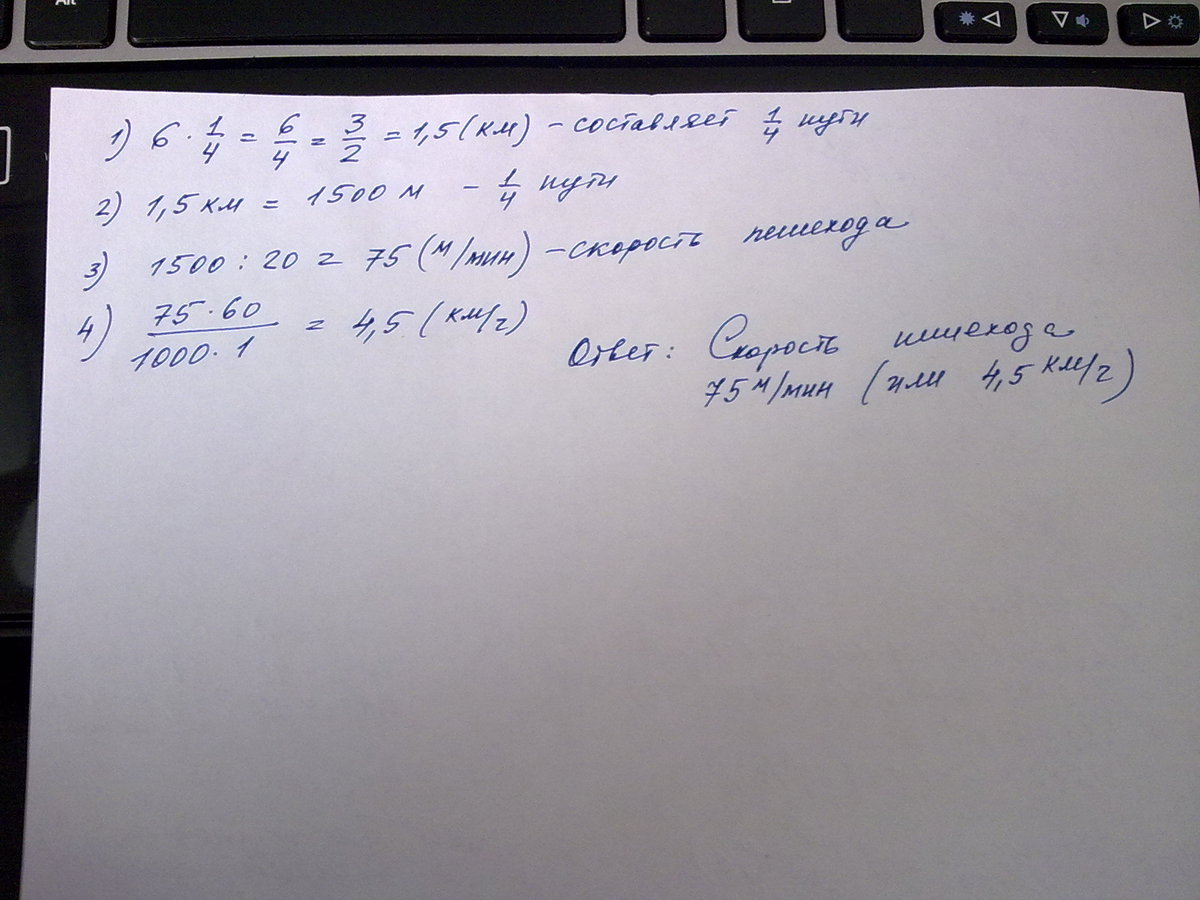 Alt
1) 6 · 1/4 = 6/4 = 3/2 = 1,5 (км) – составляет 1/4 пути
2) 1,5 км = 1500 м – 1/4 пути
3) 1500 : 20 = 75 (м/мин) – скорость пешехода
4) 75·60/1000·1 = 4,5 (км/ч)
Ответ: Скорость пешехода
75 м/мин (или 4,5 км/ч)